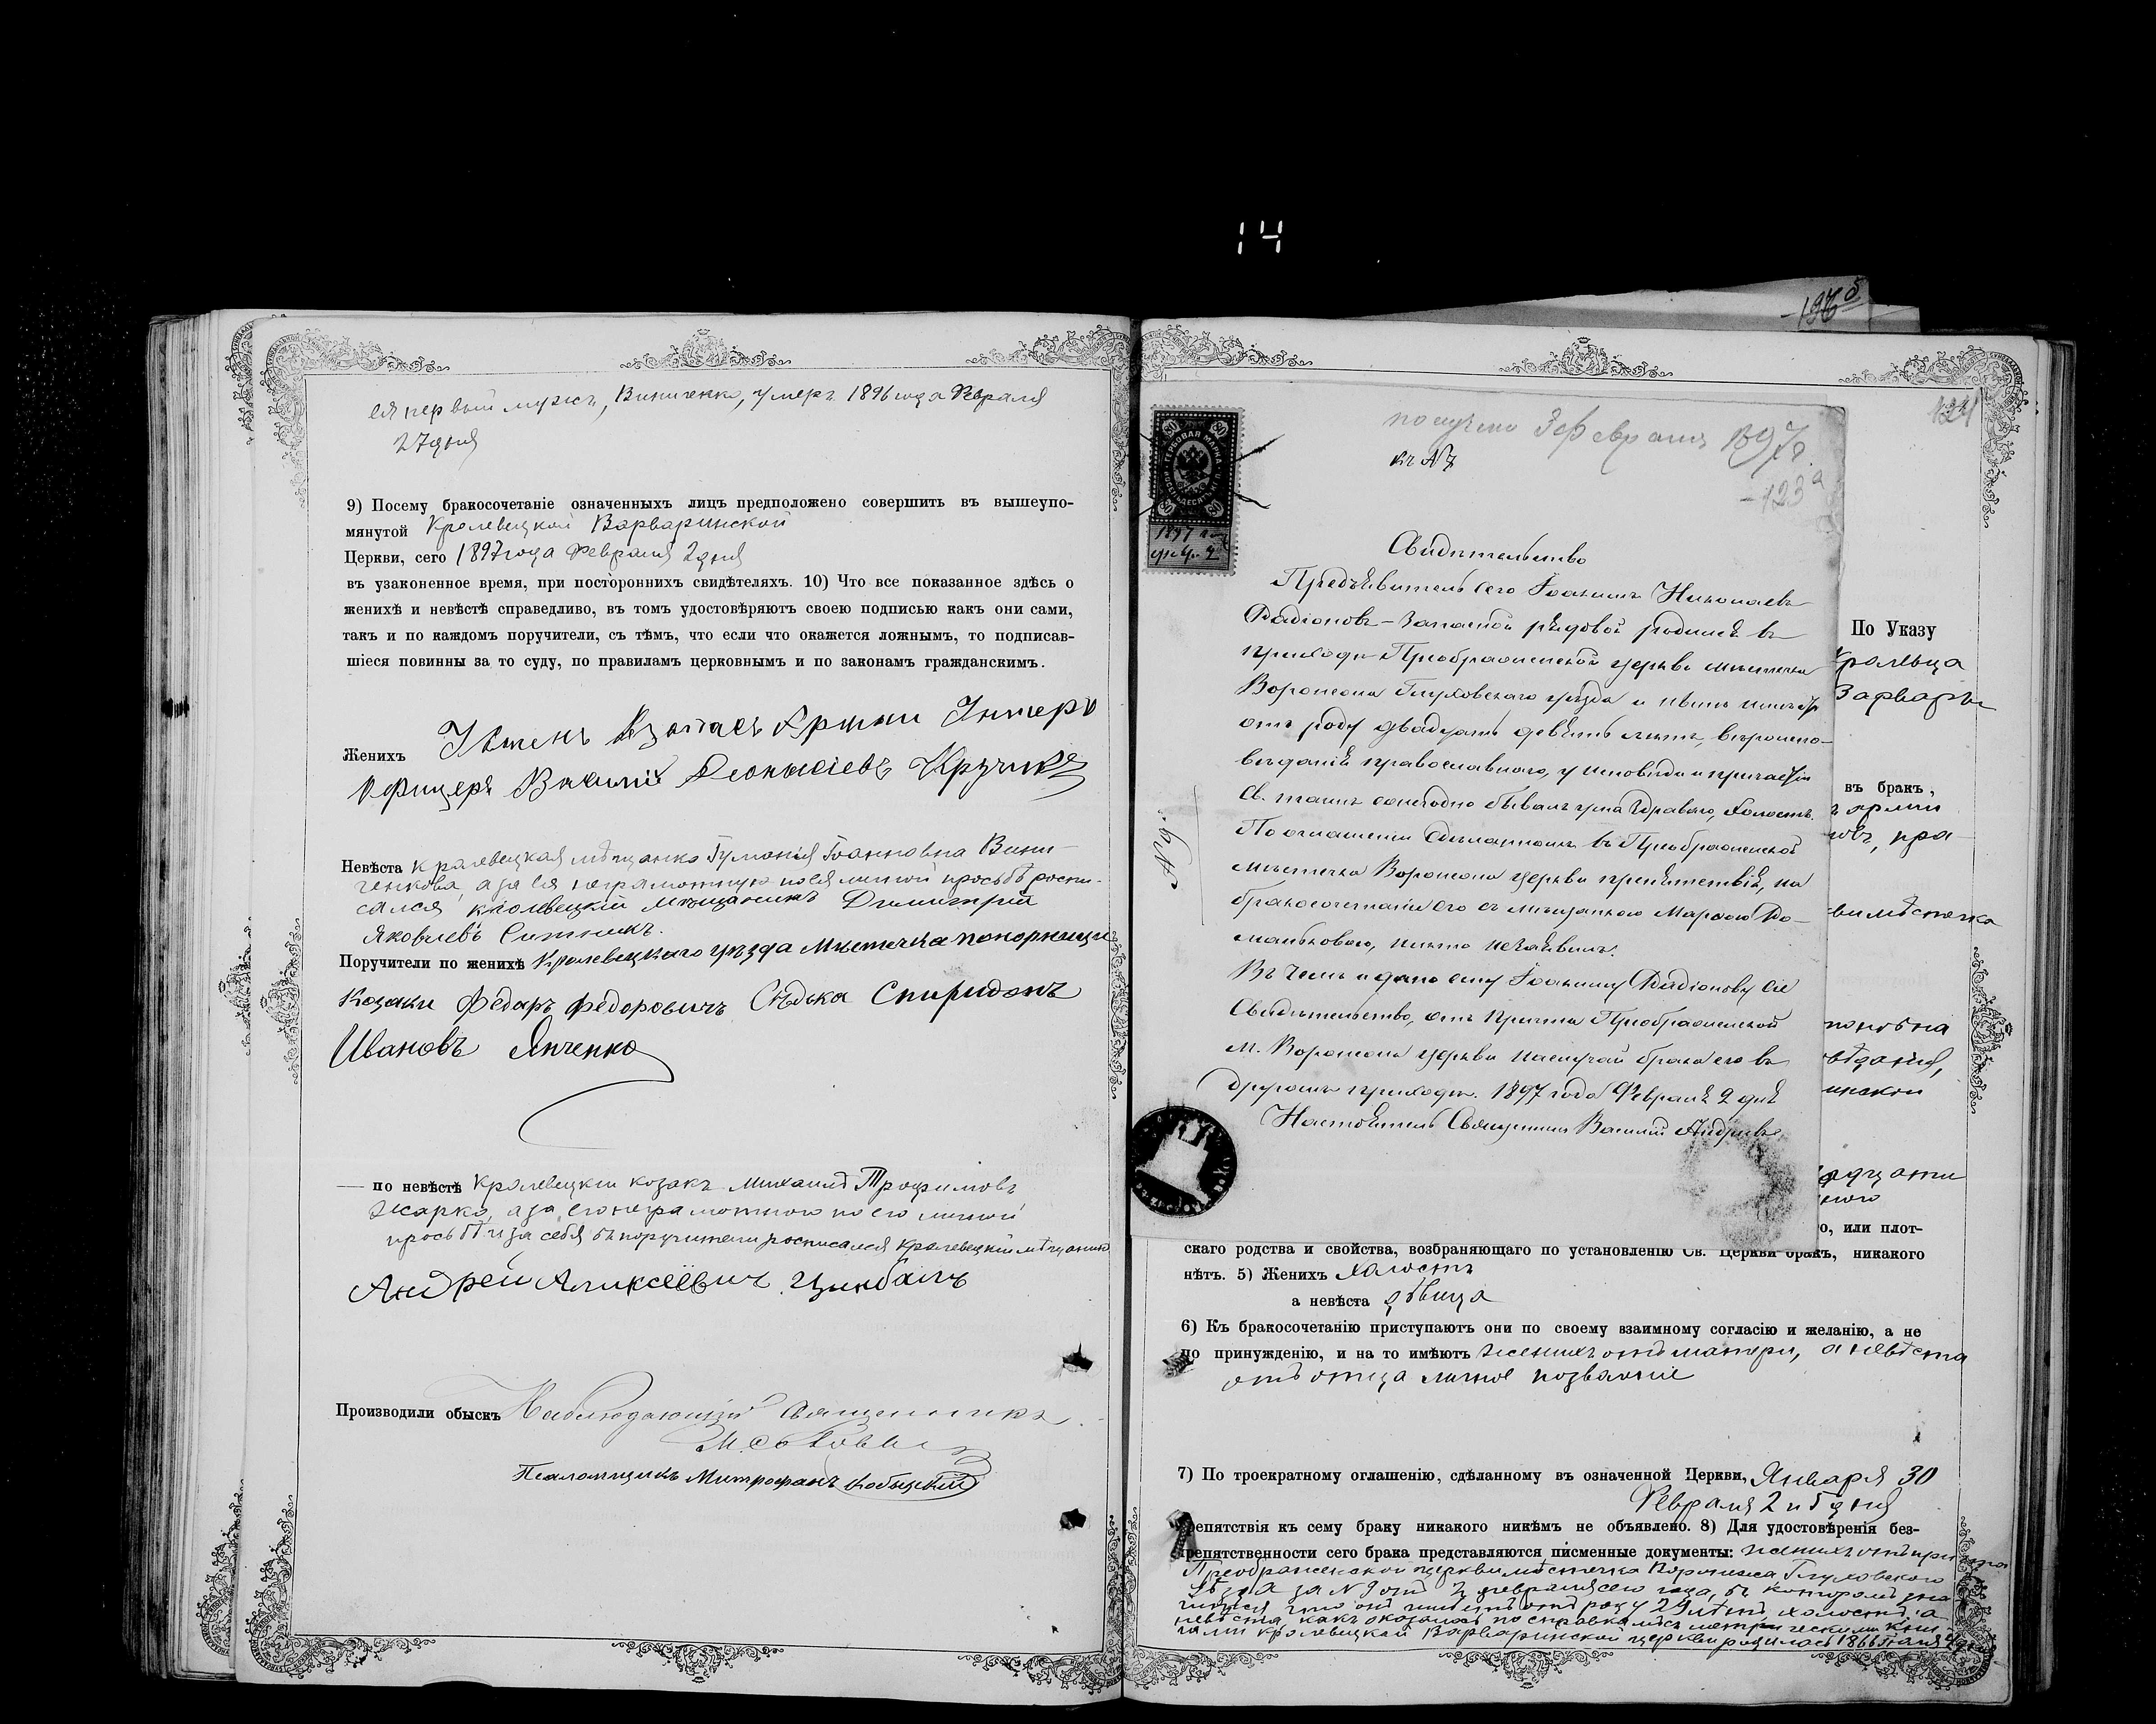 14
ея первый мужъ, Виниченко, умеръ 1896 года Февраля
27 дня
9) Посему бракосочетаніе означенныхъ лицъ предположено совершить въ вышеупо-
мянутой Кролевецкой Варваринской
Церкви, сего 1897 года Февраля 2 дня
въ узаконенное время, при постороннихъ свидѣтеляхъ. 10) Что все показанное здѣсь о
женихѣ и невѣстѣ справедливо, въ томъ удостовѣряютъ своею подписью какъ они сами,
такъ и по каждомъ поручители, съ тѣмъ, что если что окажется ложнымъ, то подписав-
шіеся повинны за то суду, по правиламъ церковнымъ и по законамъ гражданскимъ.
Женихъ Унтеръ
офицеръ Василій
Невѣста Кролевецкая мѣщанка Іоанновна Вини-
ченкова, а за ея неграмотную по ея личной просьбѣ роспи-
сался кролевецкій мѣщанинъ Димитрій
Яковлевъ Ситникъ.
Поручители по женихѣ Кролевецкаго уѣзда Мѣстечка Понорницы
Козаки Федаръ Федоровичъ Спиридонъ
Ивановъ Янченко
по невѣстѣ Кролевецкій козакъ Михаилъ Трофимовъ
Жарко, а за его неграмотного по его личной
просьбѣ и за себя въ поручители росписался Кролевецкій мѣщанинъ
Андрей Аликсеевичъ Цимбалъ
Производили обыскъ Наблюдающій Священникъ
Псаломщикъ Митрофанъ
196 б
124
ГЕРБОВАЯ МАРКА
80
1897 г.
получено 3 февраля 1897 г.
къ № 7
123 а
Свидѣтельство
Предъявитель сего Іоаннъ Николаевъ
Радіоновъ – Запасной рядовой родился въ
приходѣ Преображенской церкви мѣстечка
Воронежа Глуховскаго уѣзда и нынѣ имѣетъ
отъ роду двадцать девять лѣтъ, вѣроиспо-
вѣданія православнаго, у исповѣди и причастія
Св. таинъ ежегодно бывалъ ума здраваго, Холостъ.
По оглашеніи сдѣланномъ въ Преображенской
мѣстечка Воронежа церкви препятствія, на
бракосочетаніе его съ мѣщанкою Марѳою До-
маньковою, никто не заявилъ.
Въ чемъ и дано ему Іоанну Радіонову сіе
Свидѣтельство, отъ Причта Преображенской
м. Воронежа церкви на случай брака его въ
другомъ приходѣ. 1897 года Февраля 2 дня
Настоятель Священникъ Василій Андреевъ
№ 9.
По Указу
Кролевца
Варвары
въ бракъ,
арміи
овъ, пра
ви мѣстечка
новна
вѣданія,
инской
адцати
о, или плот-
скаго родства и свойства, возбраняющаго по установленію Св. Церкви бракъ, никакого
нѣтъ. 5) Женихъ Холостъ
а невѣста дѣвица
6) Къ бракосочетанію приступаютъ они по своему взаимному согласію и желанію, а не
по принужденію, и на то имѣютъ женихъ отъ матери, а невѣста
отъ отца личное позволеніе
7) По троекратному оглашенію, сдѣланному въ означенной Церкви, Января 30
Февраля 2 и 5 дня
репятствія къ сему браку никакого никѣмъ не объявлено. 8) Для удостовѣренія без-
репятственности сего брака представляются писменные документы: женихъ отъ причта
Преображенской церкви мѣстечка Воронежа Глуховского
уѣзда за № 9 отъ 2 февраля сего года, въ которомъ зна
чится что онъ имѣетъ отъ роду 29 лѣтъ, холостъ, а
невѣста, какъ оказалось по справкѣ съ метрическими кни
гами кролевецкой Варваринской церкви родилась 1866 г.